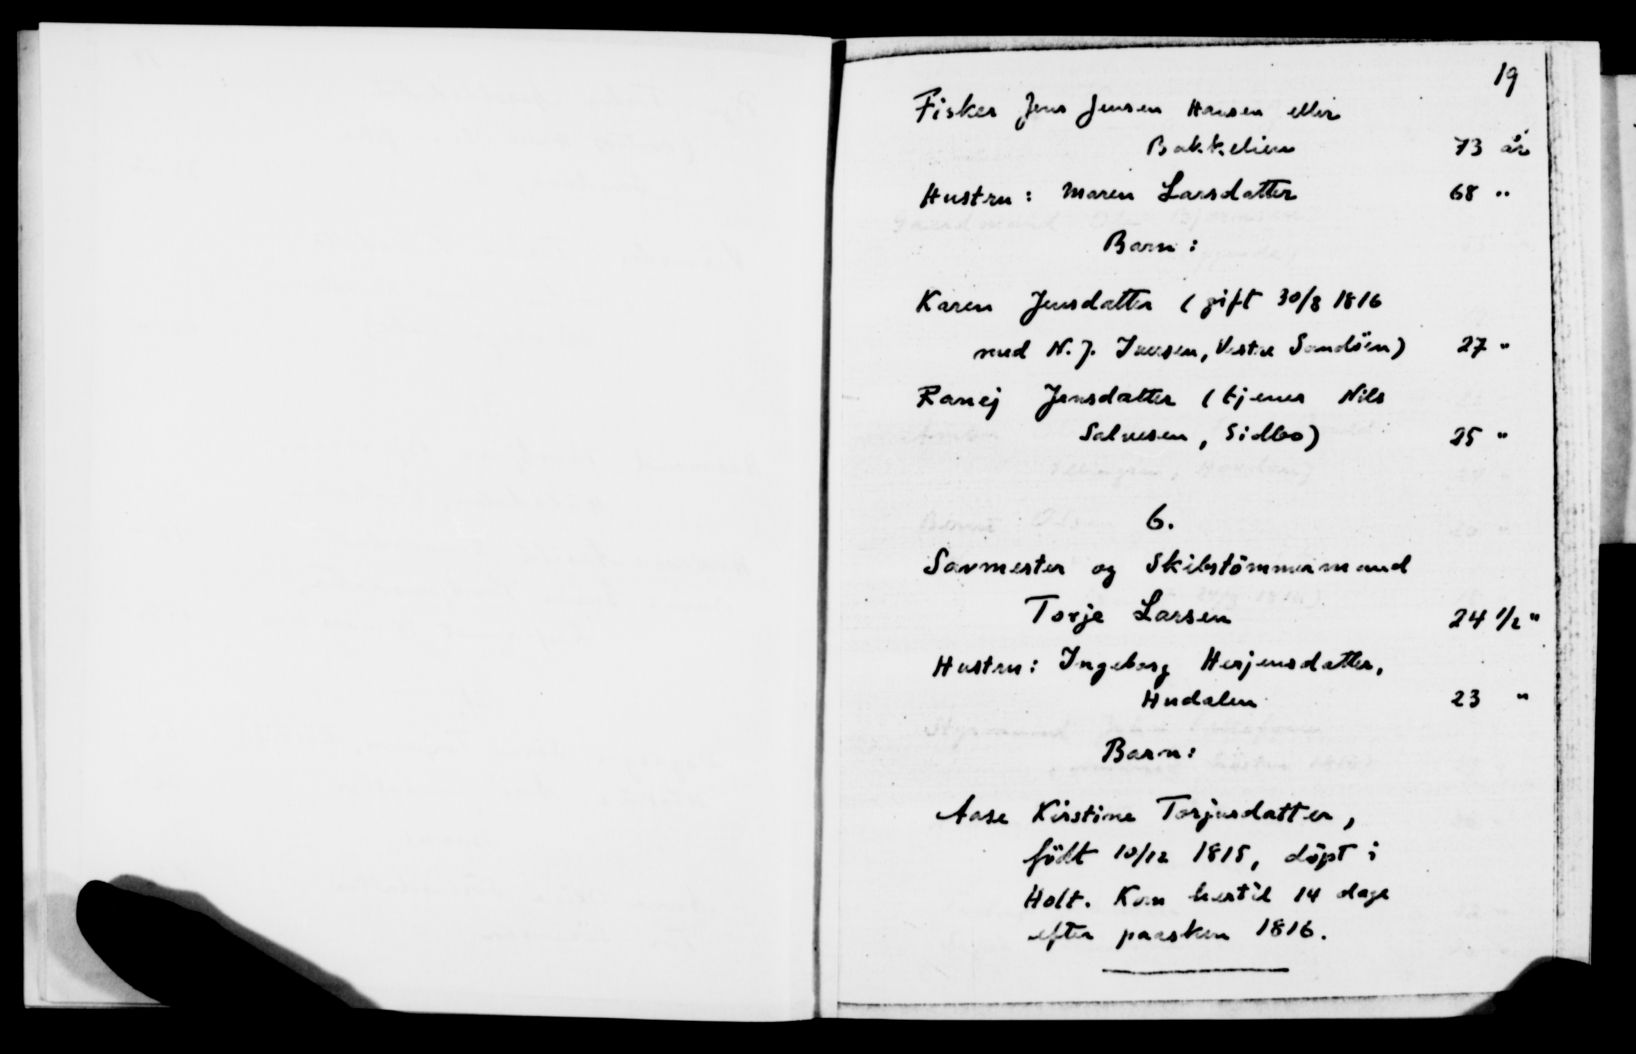 19
Fisker Jens Jensen Hansen eller
Bakkelien 73 år
Hustru: Maren Larsdatter 68 "
Barn:
Karen Jensdatter (gift 30/8 1816
med N. J. Iversen, Vestre Sandöen) 27 "
Ranej Jensdatter (tjener Nils
Salvesen, Sidbo) 25 "
6.
Savmester og Skibstömmermand
Torje Larsen 24 1/2 "
Hustru: Ingeborg Herjensdatter,
Hudalen 23 "
Barn:
Aase Kirstine Torjusdatter,
födt 10/12 1815, döpt i
Holt. Kom hertil 14 dage
efter paasken 1816.